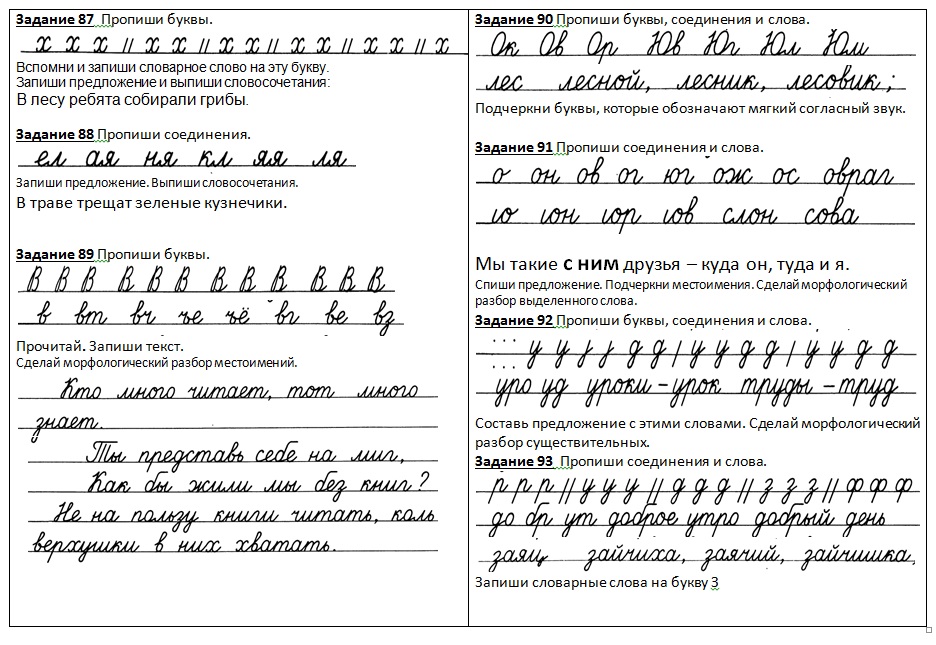 Задание 87 Пропиши буквы.
х х х // х х // х х // х х // х х // х
Вспомни и запиши словарное слово на эту букву.
Запиши предложение и выпиши словосочетания:
В лесу ребята собирали грибы.
Задание 88 Пропиши соединения.
ел ая ня кл яя ля
Запиши предложение. Выпиши словосочетания.
В траве трещат зеленые кузнечики.
Задание 89 Пропиши буквы.
В В В В В В В В В В В В
в вт вч ъе ъё вг ве вз
Прочитай. Запиши текст.
Сделай морфологический разбор местоимений.
Кто много читает, тот много
знает.
Ты представь себе на миг,
Как бы жили мы без книг?
Не на пользу книги читать, коль
верхушки в них хватать.
Задание 90 Пропиши буквы, соединения и слова.
Ок Ов Ор Юв Юг Юл Юм
лес лесной, лесник, лесовик;
Подчеркни буквы, которые обозначают мягкий согласный звук.
Задание 91 Пропиши соединения и слова.
о он ов ог юг ож ос овраг
ю юн юр юв слон сова
Мы такие с ним друзья – куда он, туда и я.
Спиши предложение. Подчеркни местоимения. Сделай морфологический
разбор выделенного слова.
Задание 92 Пропиши буквы, соединения и слова.
... у у j j д д / у у д д / у у д д
... уро уд уроки – урок труды – труд
Составь предложение с этими словами. Сделай морфологический
разбор существительных.
Задание 93 Пропиши соединения и слова.
р р р // у у у // д д д // з з з // ф ф ф
до бр ут доброе утро добрый день
заяц зайчиха, заячий, зайчишка,
Запиши словарные слова на букву З